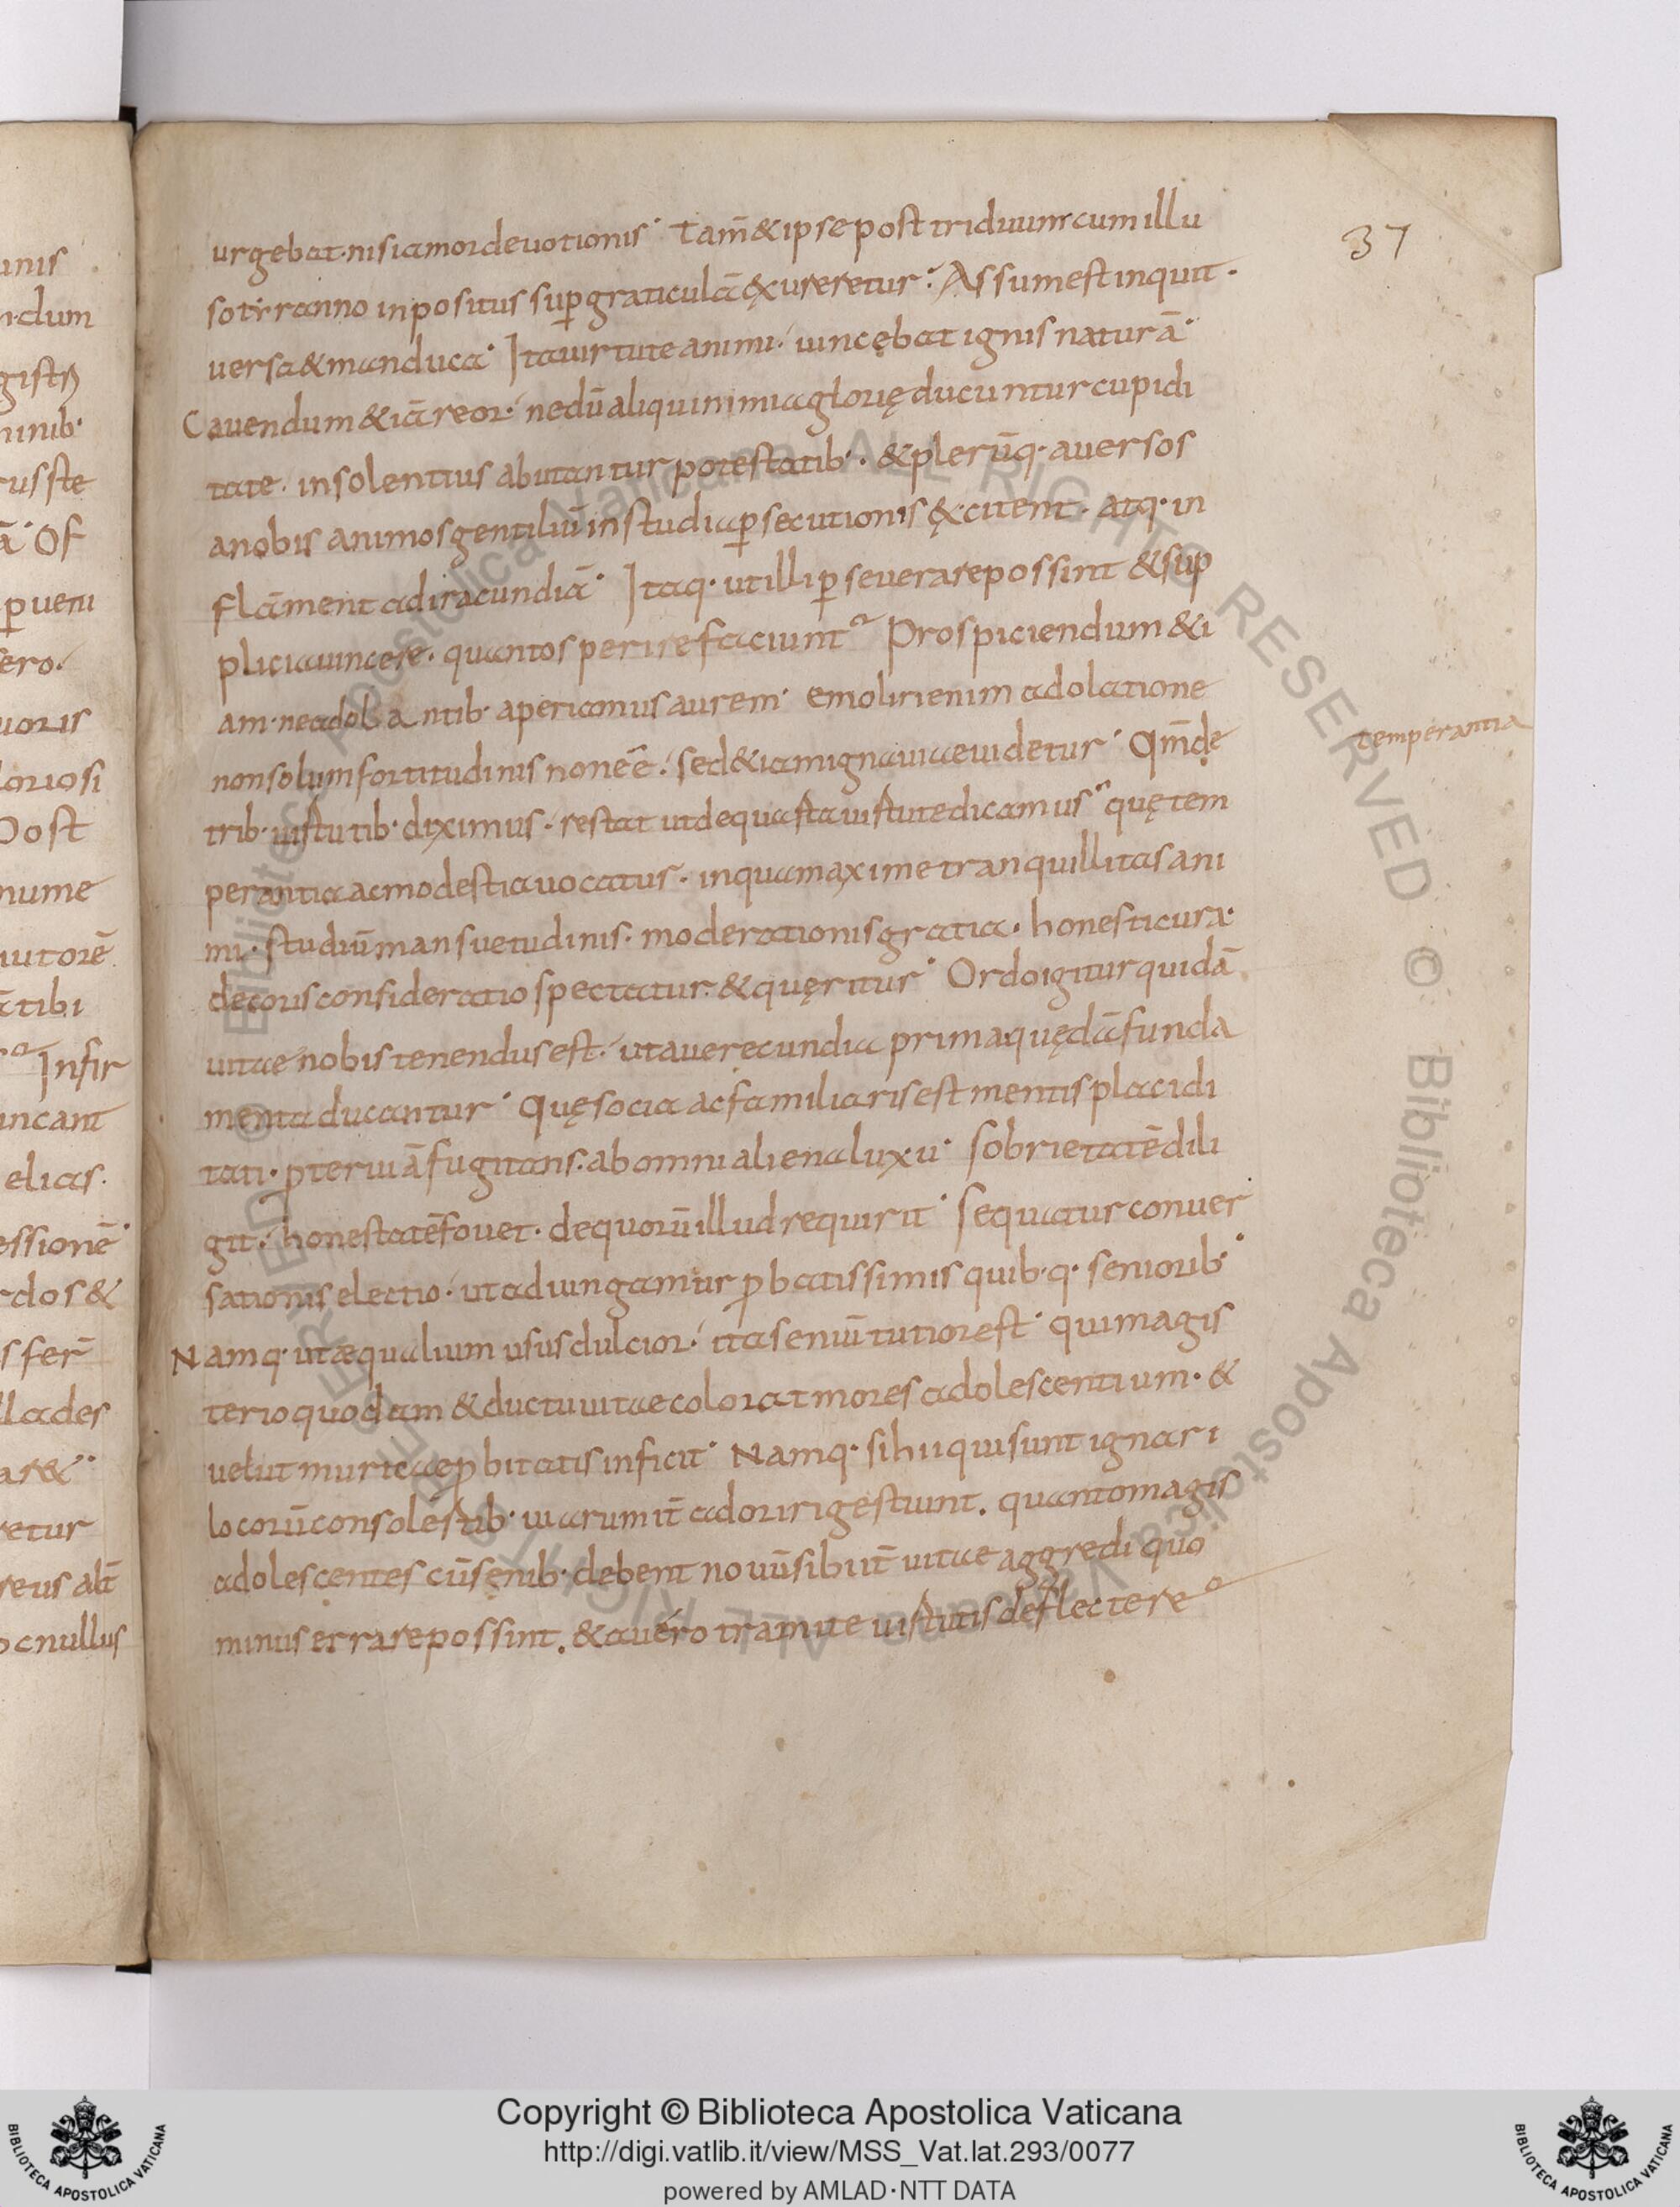 unis
n·dum
gistr
ninib·
rus ste
ā· Of
ꝑ ueni
fero·
uoris
loriosi
Post
nume
iutorē
ātibi
Infir
uncant
elias·
essionē·
rdos &
s fer̄
llades
ar&·
retur
reus alt̄
oc nullus
37
urgebat· nisi amor deuotionis· Tam̄ & ipse post triduum cum illu
so tyranno inpositus suꝑ graticulā exureretur· Assum est inquit·
uersa & manduca· Ita uirtute animi· uincebat ignis naturā·
Cauendum & iā reor· ne dū aliqui nimia glorię ducuntur cupidi
tate· insolentius abutantur potestatib·· & plerūq· auersos
a nobis animos gentiliū in studia ꝑsecutionis excitent· atq· in
flāment ad iracundiā· Itaq· ut illi ꝑseuerare possint & sup
plicia uincere· quantos perire faciunt? Prospiciendum & i
am· ne adolantib· aperiamus aurem· emoliri enim adolatione
non solum fortitudinis non eē· sed & iam ignauiae uidetur· Qm̄ de
trib· uirtutib· diximus· restat ut de quarta uirtute dicamus quę tem
perantia ac modestia uocatur· in qua maxime tranquillitas ani
mi· studiū mansuetudinis· moderationis gratia· honesti cura·
decoris consideratio spectatur· & quęritur· Ordo igitur quidā
uitae nobis tenendus est· ut a uerecundia prima quędā funda
menta ducantur· Quę socia ac familiaris est mentis placidi
tati· ꝓteruiā fugitans· ab omni aliena luxu· sobrietatē dili
git· honestatē fouet· decorū illud requirit· Sequatur conuer
sationis electio· ut adiungamur ꝓbatissimis quib·q· seniorib·
Namq· ut æqualium usus dulcior· ita seniū tutior est· qui magis
terio quodam & ductu uitae colorat mores adolescentium· &
uelut murice ꝓbitatis inficit· Namq· si hii qui sunt ignari
locorū con solertib· uiarum it̄ adoriri gestiunt· quanto magis
adolescentes cū senib· debent nouū sibi it̄ uitae aggredi quo
minus errare possint· & a uero tramite uirtutis deflectere
temperantia
Copyright © Biblioteca Apostolica Vaticana
http://digi.vatlib.it/view/MSS_Vat.lat.293/0077
powered by AMLAD·NTT DATA
BIBLIOTECA APOSTOLICA VATICANA
BIBLIOTECA APOSTOLICA VATICANA
© Biblioteca Apostolica Vaticana ALL RIGHTS RESERVED © Biblioteca Apostolica Vaticana ALL RIGHTS RESERVED